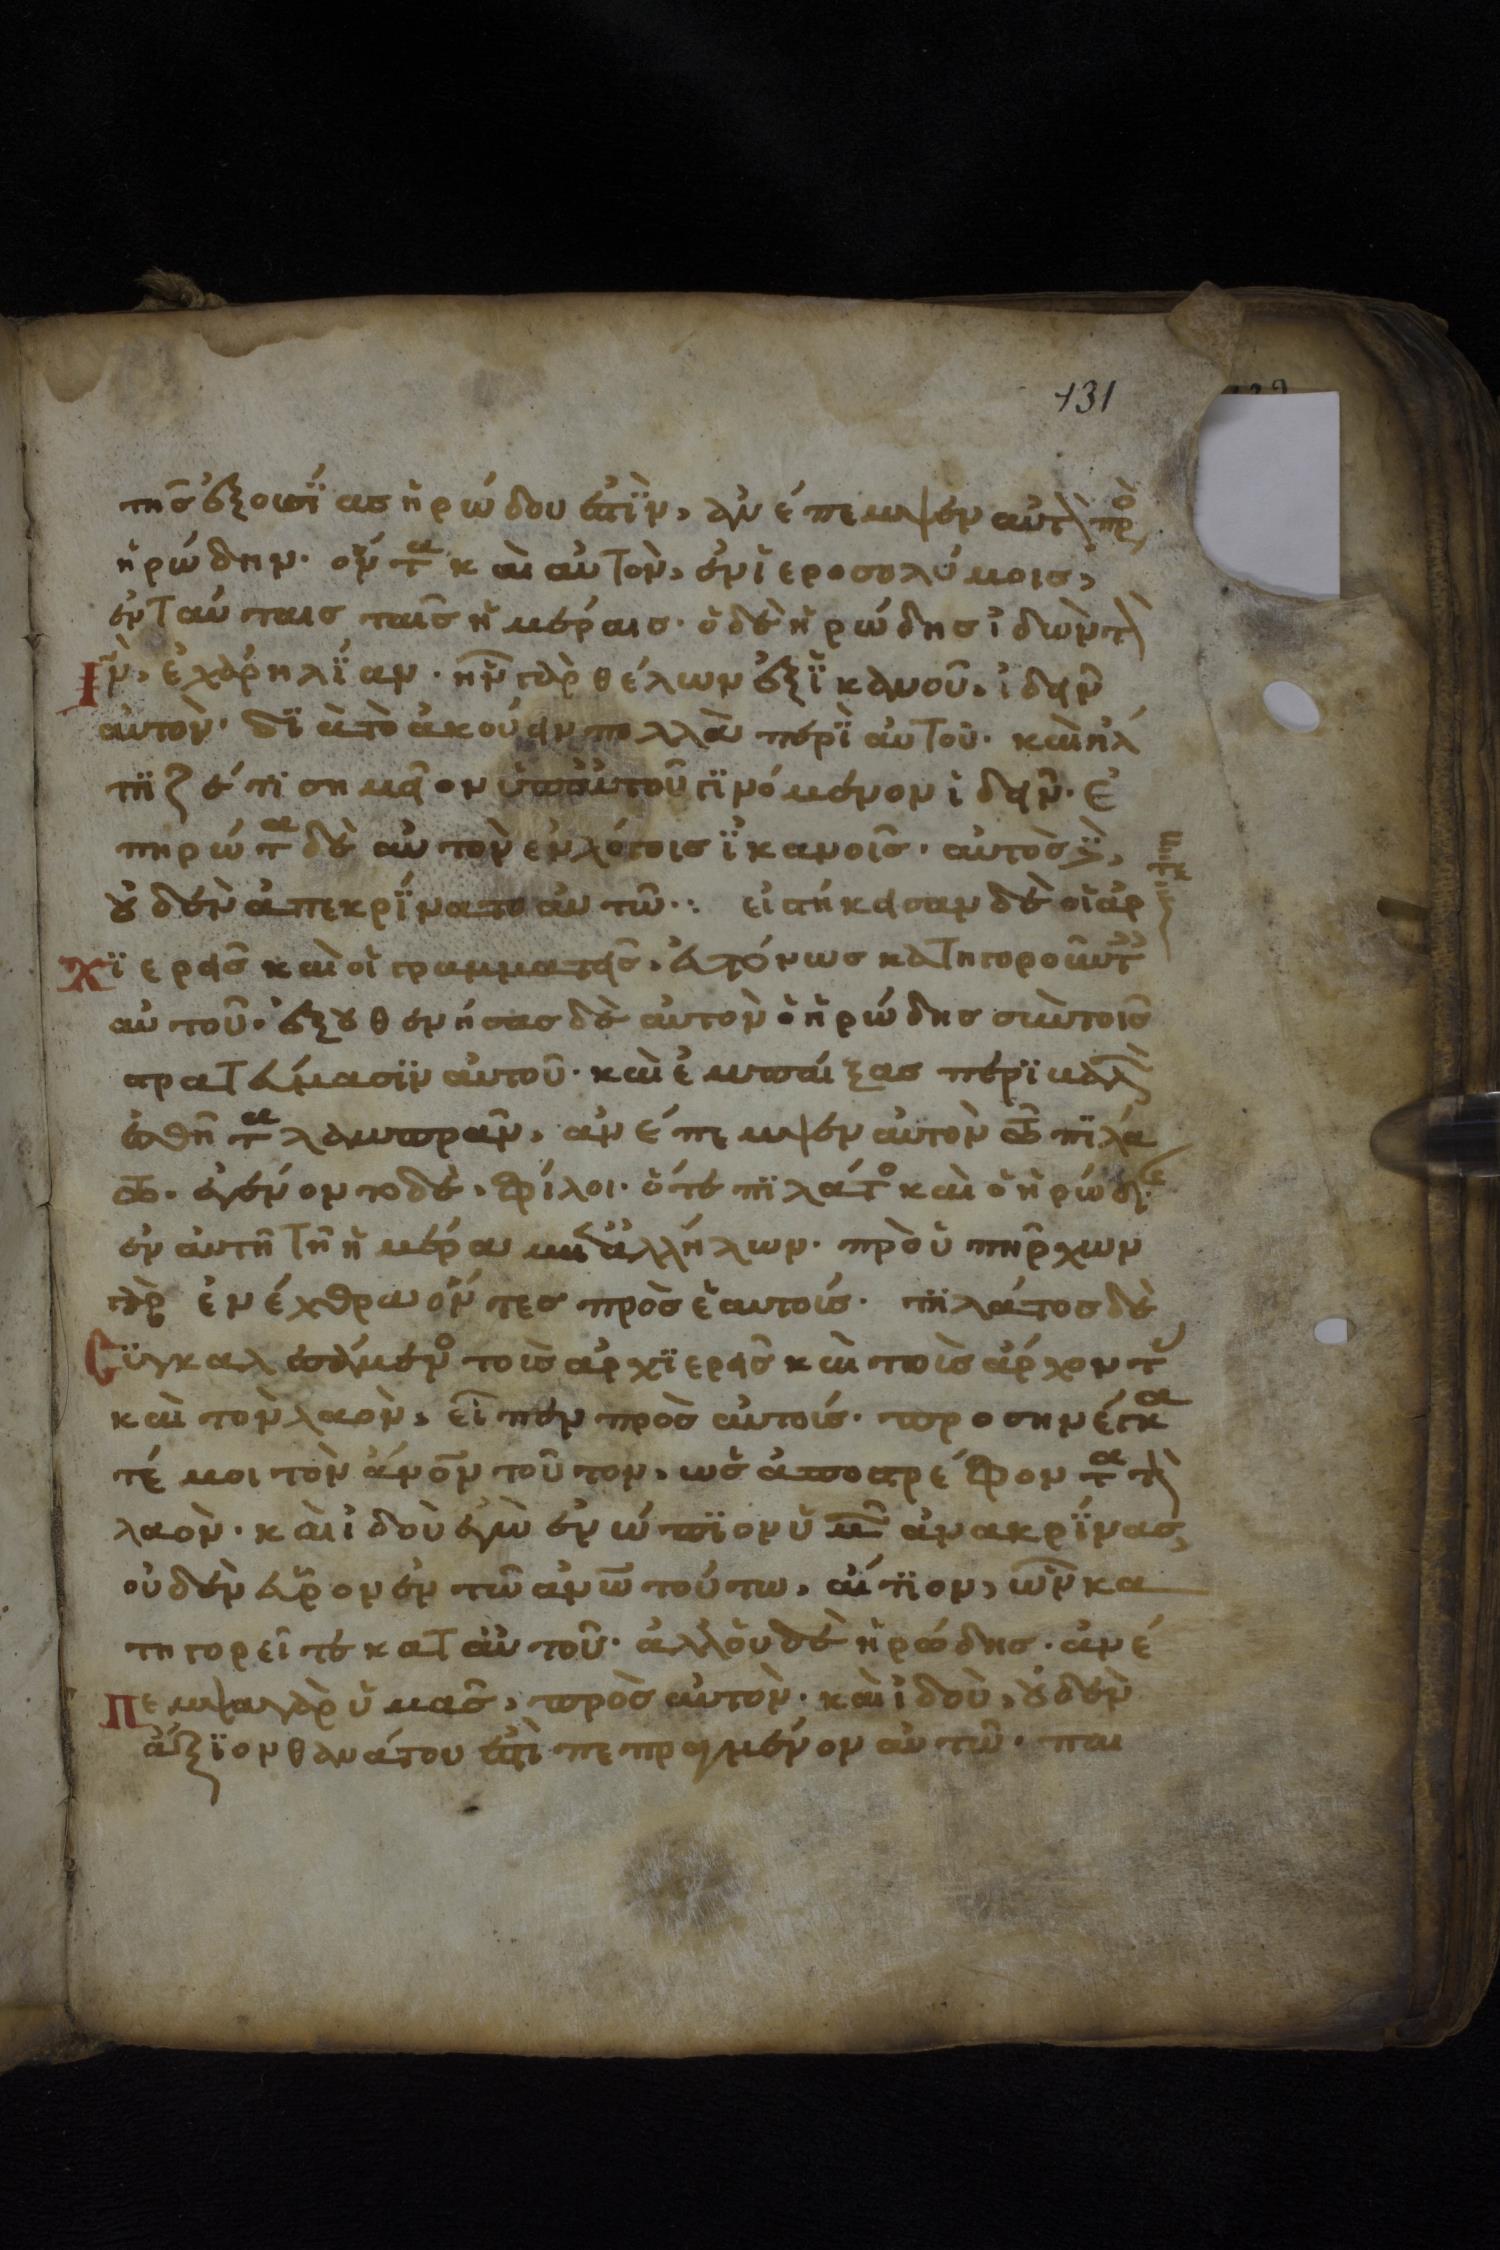 131
τῆς ἐξουσΐας ἡρώδου ἐστὶν, ἀνέπεμψεν αὐτὸν πρὸς
ἡρώδην· ὄντα καὶ αὐτὸν, ἐν ἱεροσολύμοις,
ἐν ταύταις ταῖς ἡμέραις· ὁ δὲ ἡρώδης ἰδὼν τὸν
ιν, ἐχάρη λΐαν· ἦν γὰρ θέλων ἐξ ϊκανοῦ, ἰδεῖν
αὐτον· δϊὰ τὸ ἀκούειν πολλὰ περὶ αὐτοῦ· καὶ ἤλ
πϊζέ τϊ σημεῖον ὑπ αὐτοῦ γϊνόμενον ἰδεῖν· ἐ
πηρώτα δὲ αὐτὸν ἐν λόγοις ϊκανοῖς· αὐτὸς δὲ,
οὐδὲν ἀπεκρΐνατο αὐτῶ·: εἱστήκεισαν δὲ οἱ ἀρ
χϊερεῖς καὶ οἱ γραμματεῖς, εὐτόνως κατηγοροῦντες
αὐτοῦ· ἐξουθενήσας δὲ αὐτὸν ὁ ἡρώδης σὺν τοῖς
στρατεύμασϊν αὐτοῦ· καὶ ἐμπαίξας περϊβαλὼν
ἐσθῆτα λαμπρὰν, ἀνέπεμψεν αὐτὸν τῶ πϊλά
τω· ἐγένοντο δὲ, φίλοι· ὅ τε πϊλάτος καὶ ὁ ἡρώδης
ἐν αὐτῆ τῆ ἡμέρα μετ ἀλλήλων· προὑπῆρχων
γὰρ ἐν ἔχθρα ὄντες πρὸς ἑαυτούς· πϊλάτος δὲ
συγκαλεσάμενος τοὺς ἀρχϊερεῖς καὶ τοὺς ἄρχοντας
καὶ τὸν λαὸν, εἶπεν πρὸς αὐτούς· προσηνέγκα
τέ μοι τὸν ἄνον τοῦτον, ὡς ἀποστρέφοντα τὸν
λαὸν· καὶ ἰδοὺ ἐγὼ ἐνώπϊον ὑμῶν ἀνακρΐνας,
οὐδὲν εὗρον ἐν τῶ ἀνω τούτω, αἴτϊον, ὧν κα
τηγορεῖτε κατ αὐτοῦ· ἀλλ οὐδὲ ἡρώδης· ἀνέ
πεμψα γὰρ ὑμᾶς, πρὸς αὐτὸν· καὶ ἰδοὺ, οὐδὲν
ἄξϊον θανάτου ἐστὶ πεπραγμένον αὐτῶ· παι